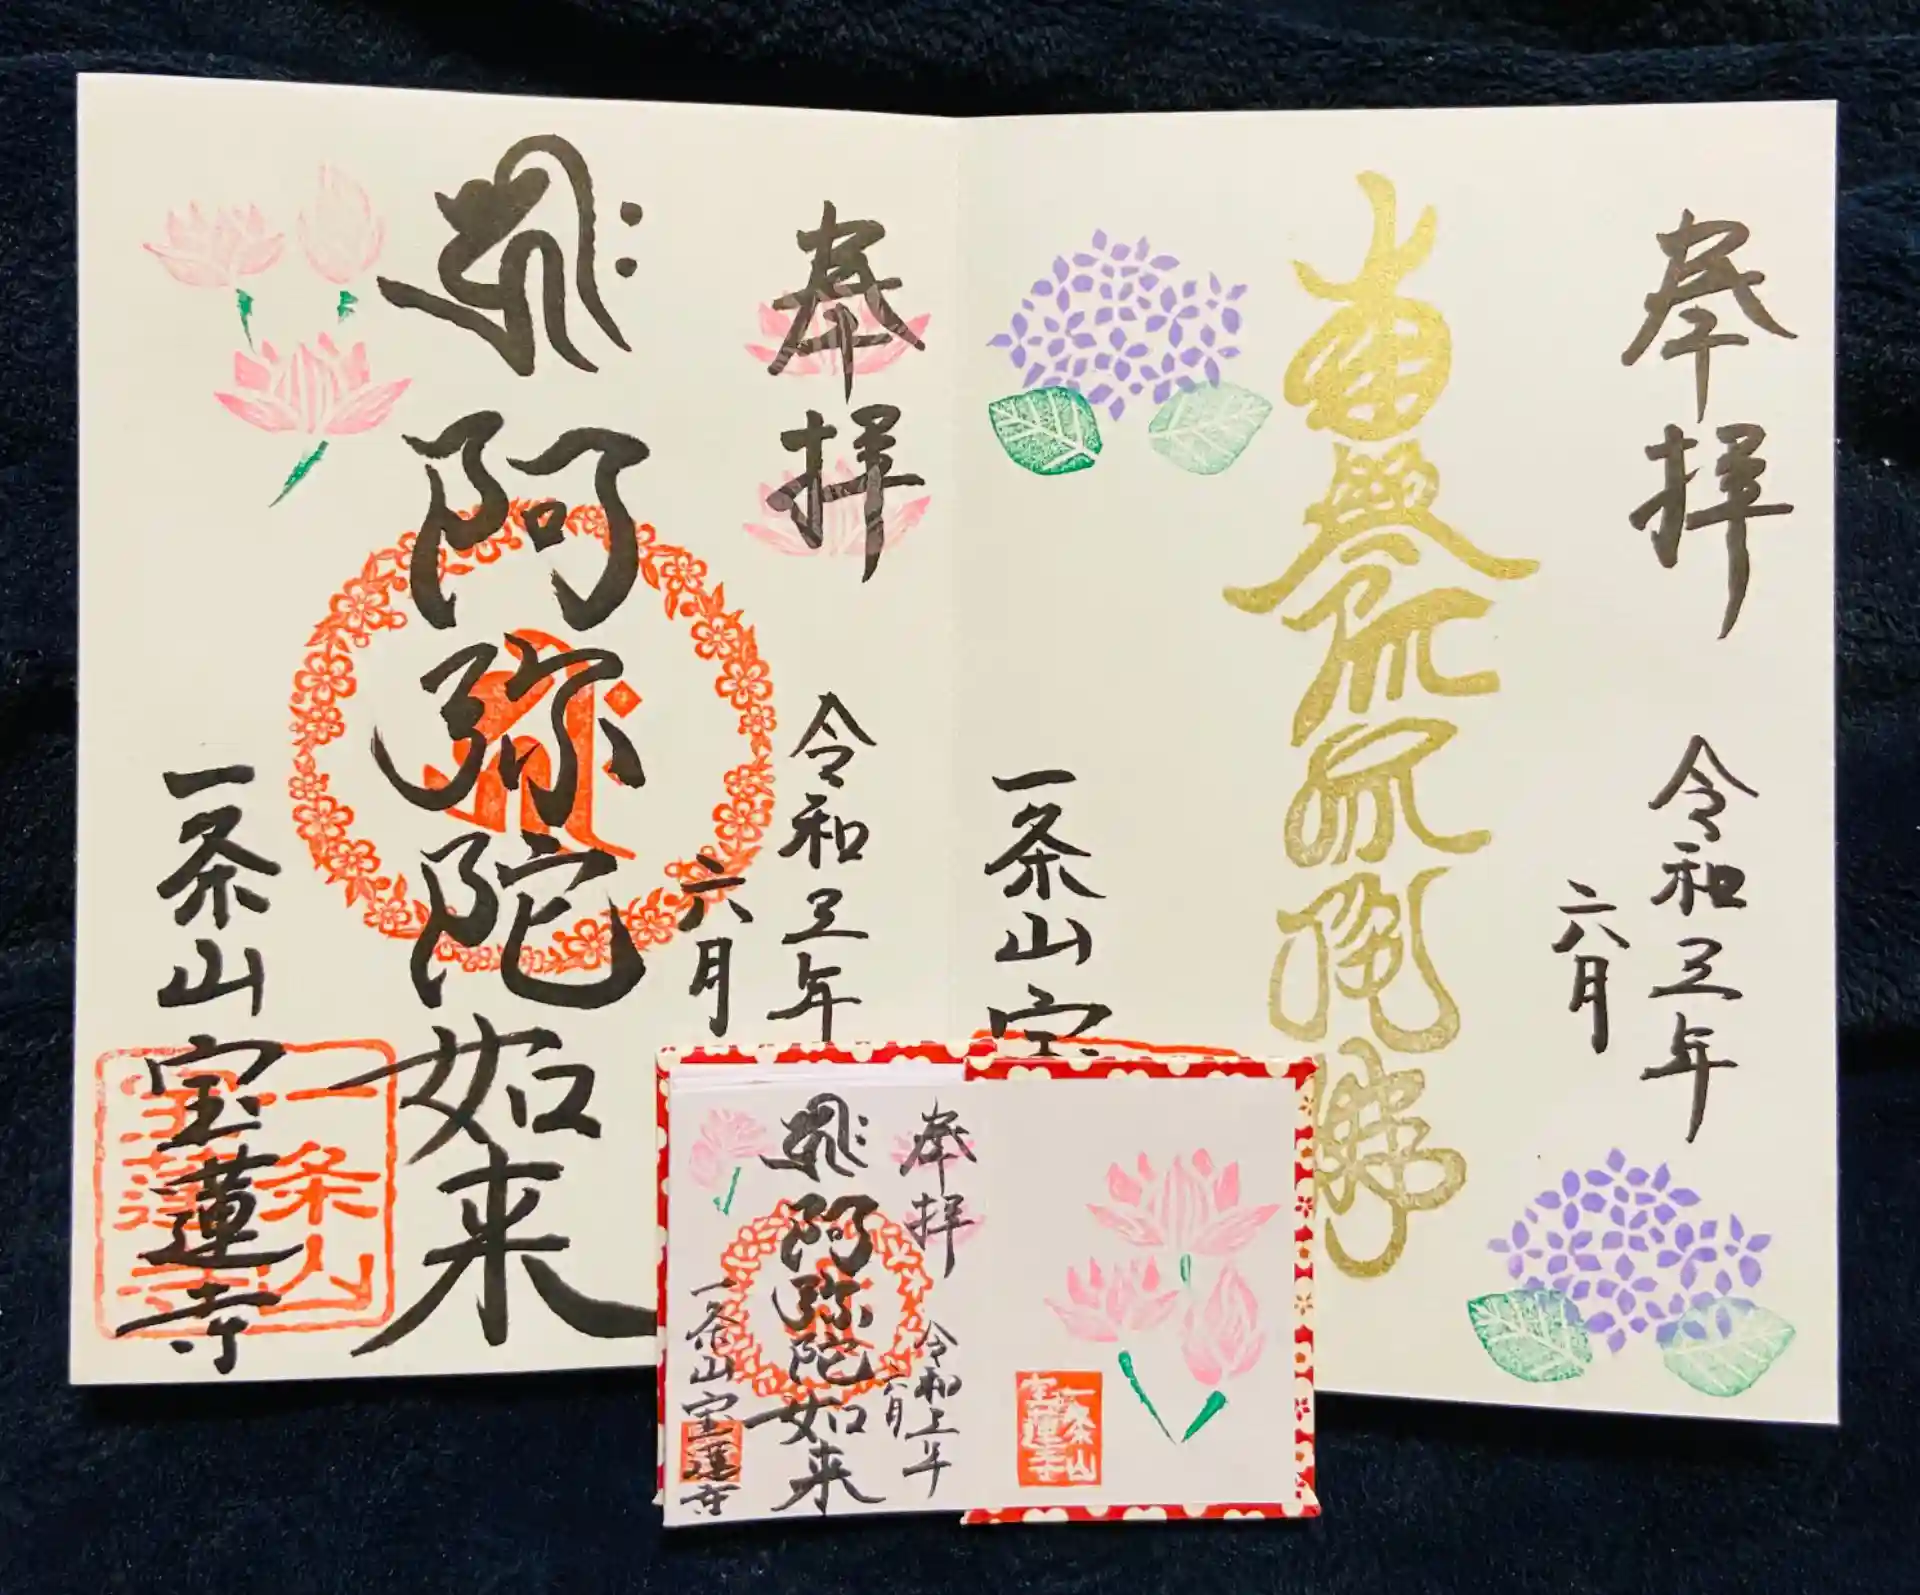 奉拝
令和三年
六月
南無阿弥陀佛
一条山宝
奉拝
令和三年
六月
阿弥陀如来
一条山
宝蓮寺
一条山
宝蓮寺
一条山
宝蓮寺
奉拝
令和三年
六月
阿弥陀如来
一条山宝蓮寺